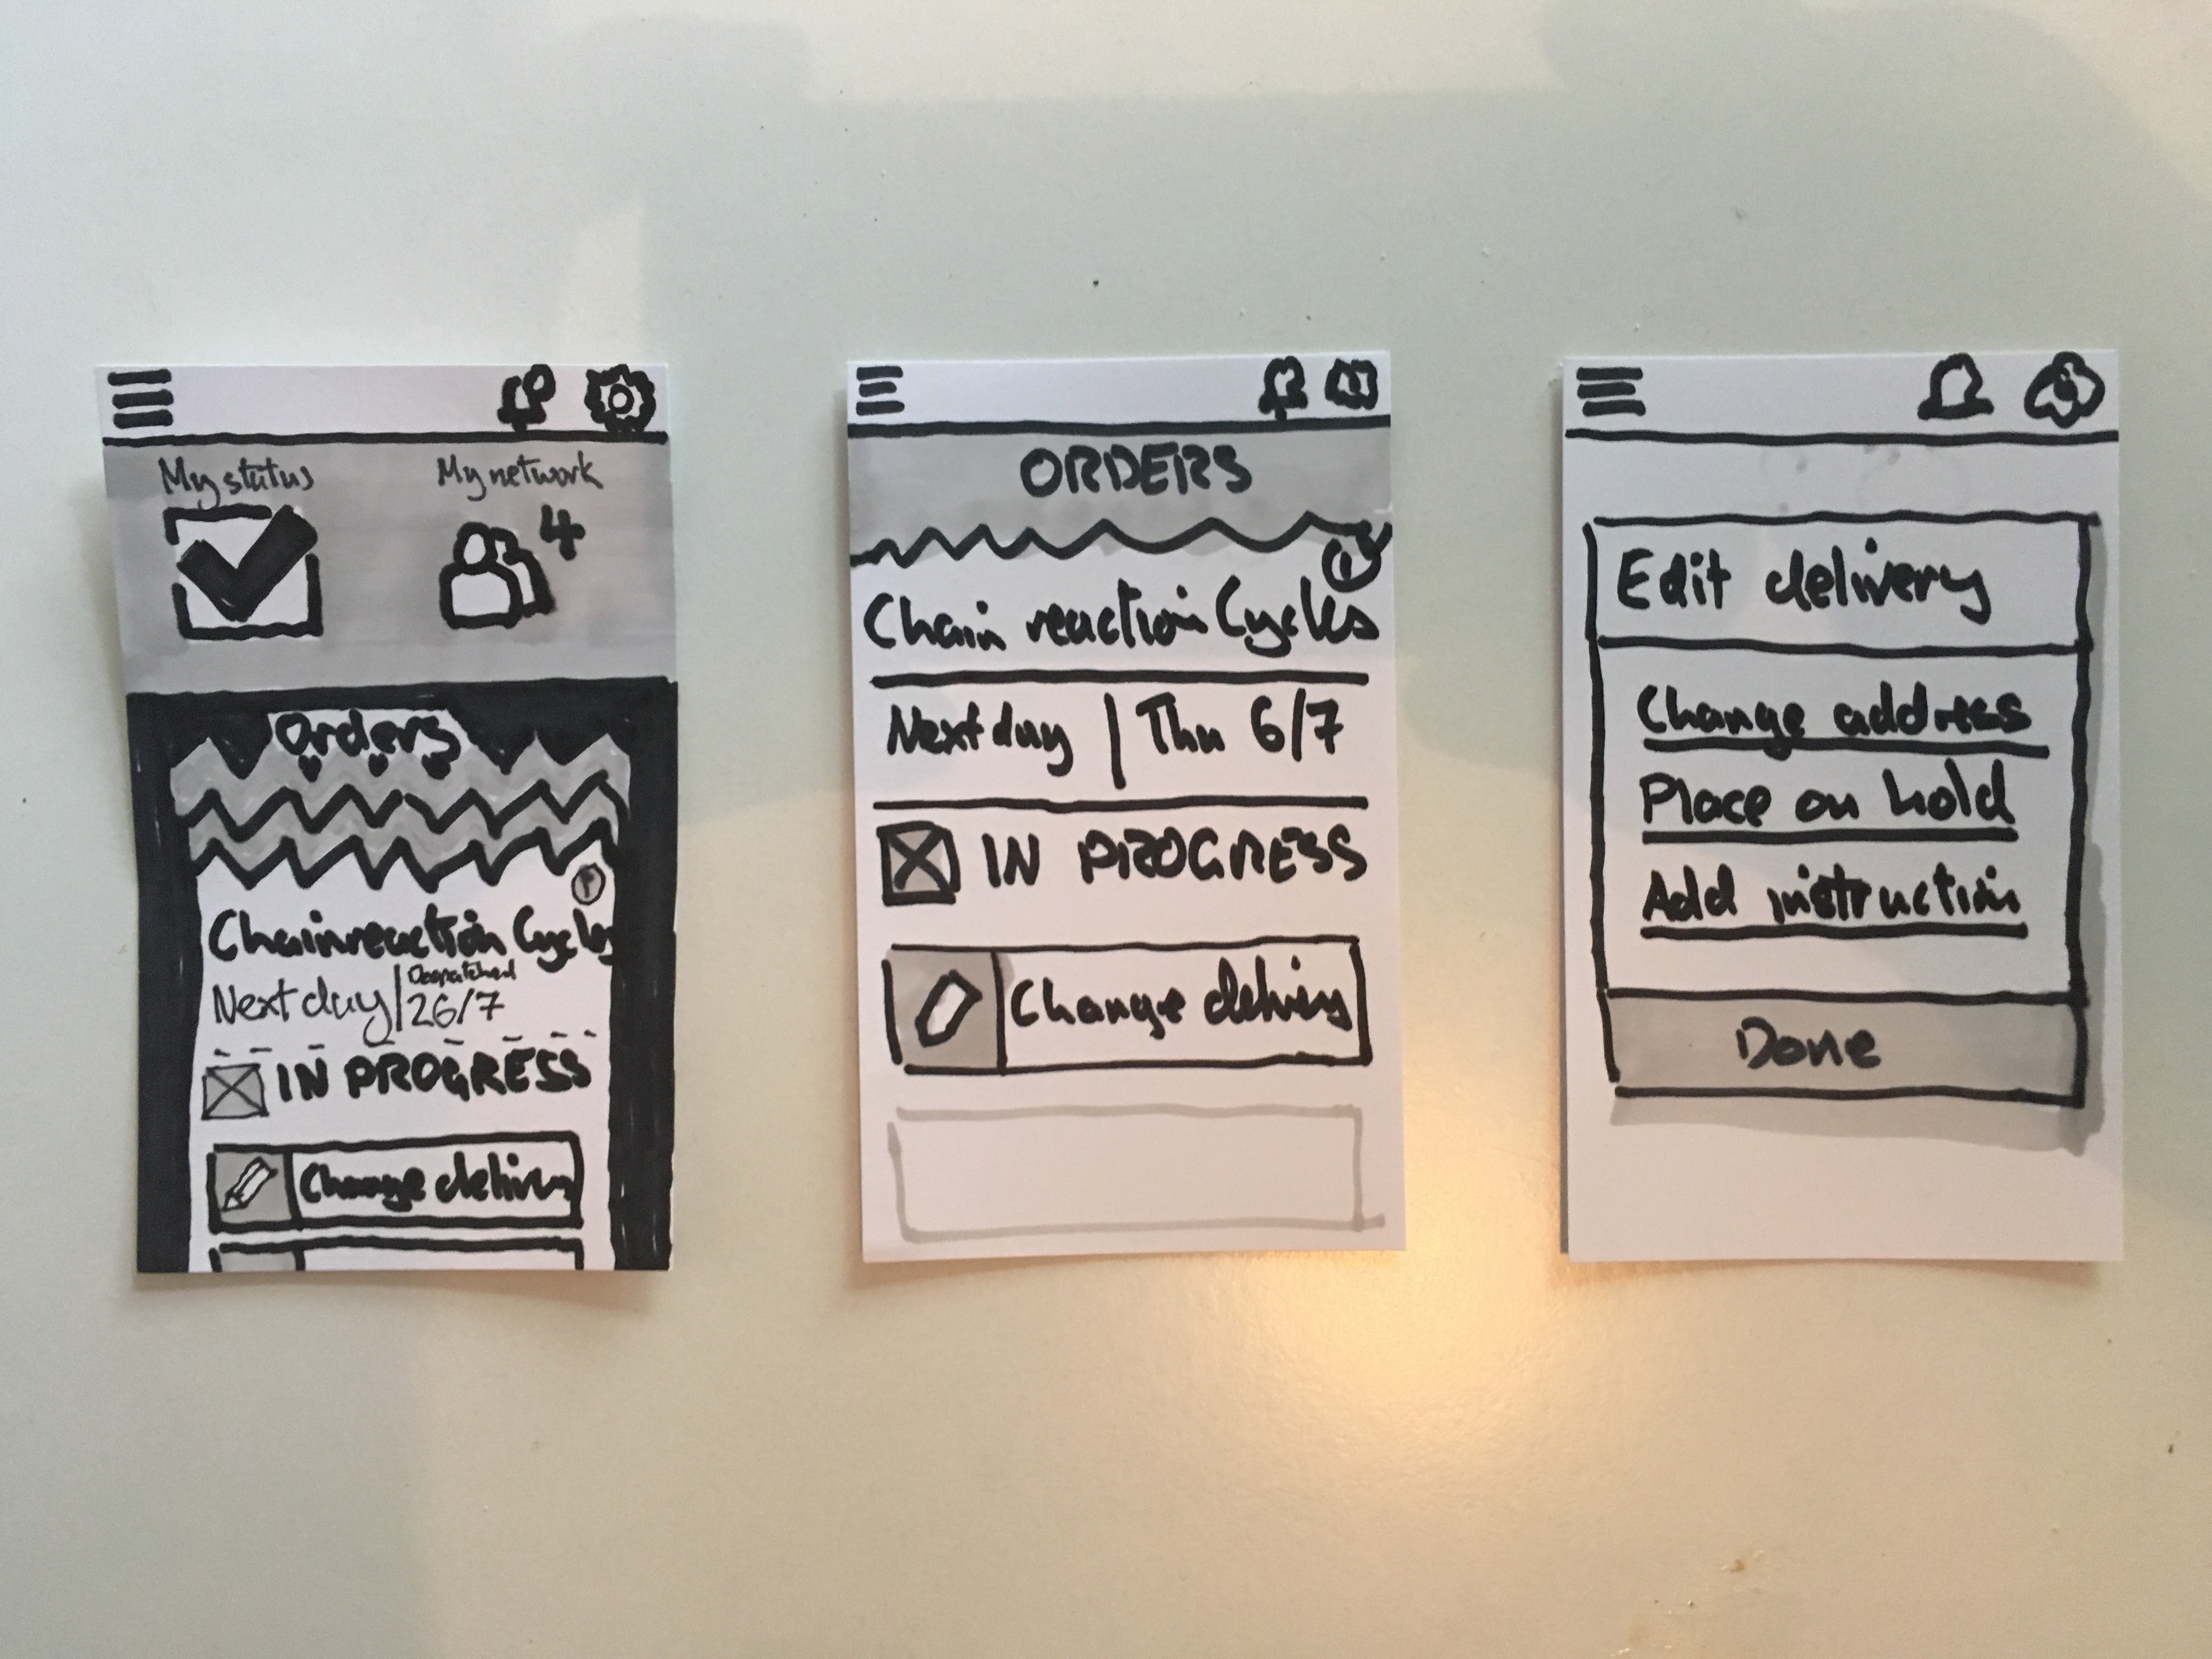 My status
My network
4
Orders
Chainreaction Cycles
Next day | Despatched
26/7
IN PROGRESS
Change delivery
ORDERS
Chain reaction Cycles
Next day | Thu 6/7
IN PROGRESS
Change delivery
Edit delivery
Change address
Place on hold
Add instruction
Done